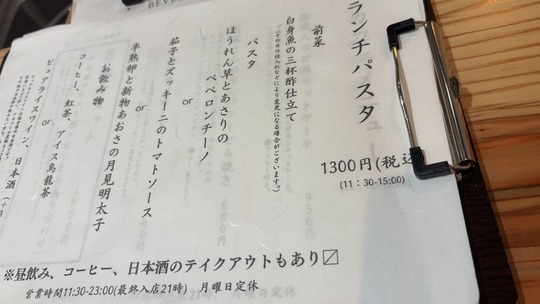 BEVE
ランチパスタ
1300円(税込
(11:30-15:00)
前菜
白身魚の三杯酢仕立て
(その日の仕入れなどにより変更になる場合がございます。)
パスタ
ほうれん草とあさりの
ペペロンチーノ
or
茄子とズッキーニのトマトソース
or
半熟卵と新物あおさの月見明太子
お飲み物
コーヒー、紅茶、アイス烏龍茶
or
ピュアライスワイン、日本酒(+3
※昼飲み、コーヒー、日本酒のテイクアウトもあり〼
営業時間11:30-23:00(最終入店21時) 月曜日定休